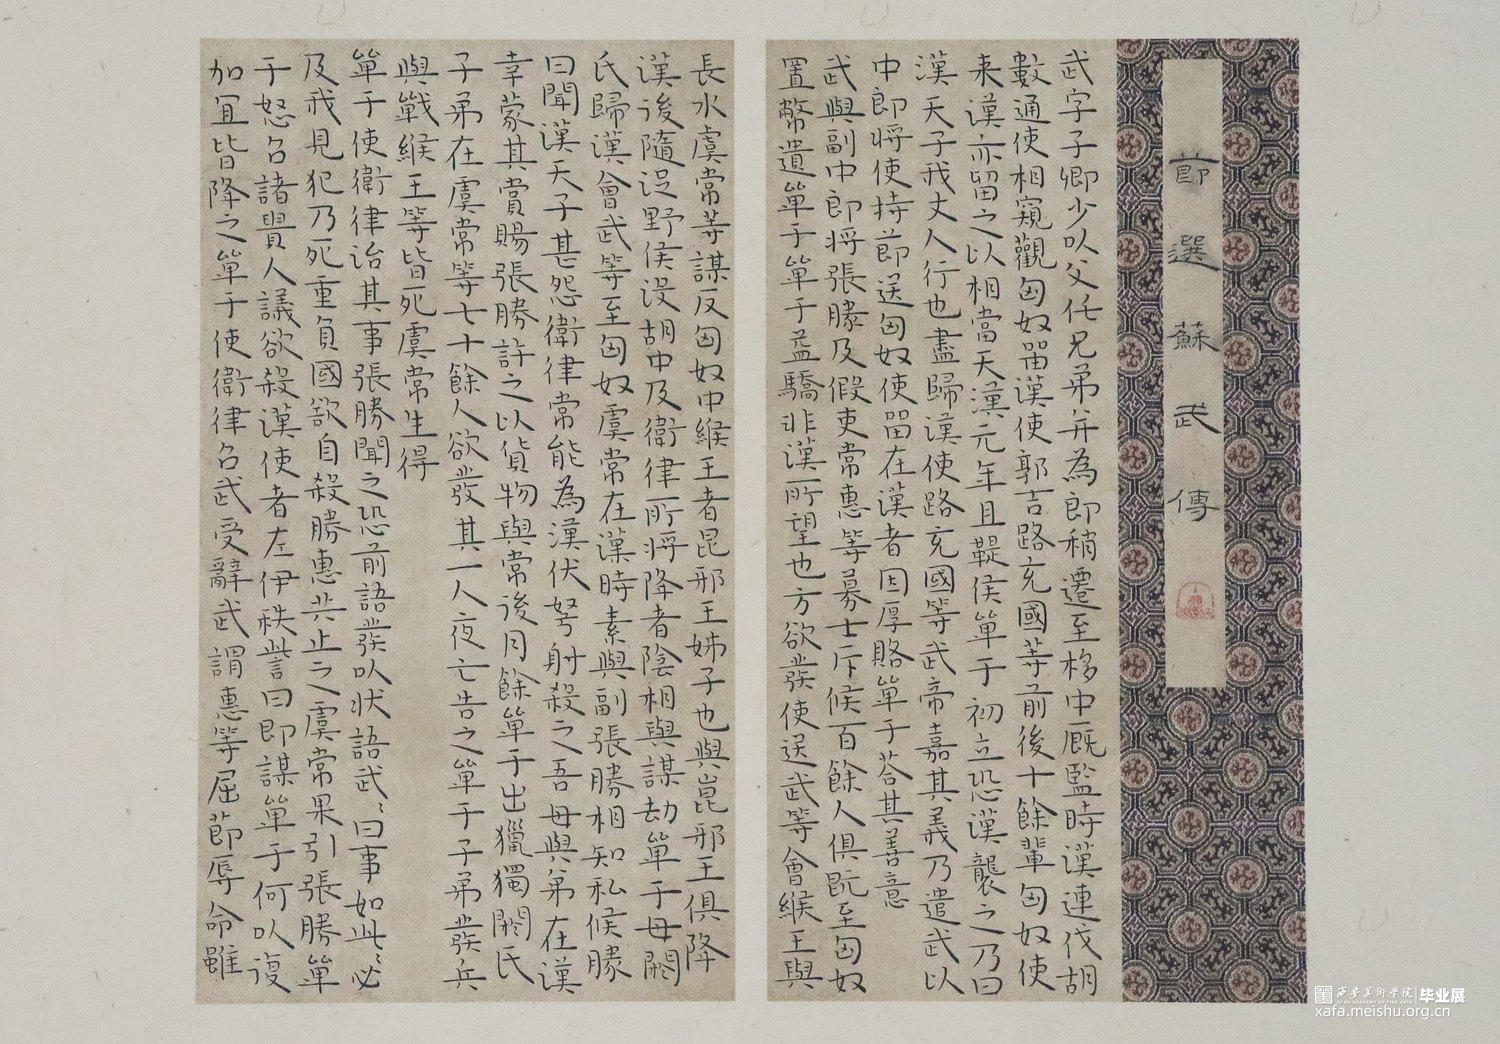 節選蘇武傳
武字子卿少以父任兄弟并為郎稍遷至栘中厩監時漢連伐胡
數通使相窺觀匈奴留漢使郭吉路充國等前後十餘輩匈奴使
来漢亦留之以相當天漢元年且鞮侯單于初立恐漢襲之乃曰
漢天子我丈人行也盡歸漢使路充國等武帝嘉其義乃遣武以
中郎将使持節送匈奴使留在漢者因厚賂單于荅其善意
武與副中郎将張勝及假吏常惠等募士斥候百餘人俱既至匈奴
置幣遺單于單于益驕非漢所望也方欲發使送武等會緱王與
長水虞常等謀反匈奴中緱王者昆邪王姊子也與昆邪王俱降
漢後隨浞野侯没胡中及衛律所将降者陰相與謀劫單于母閼
氏歸漢會武等至匈奴虞常在漢時素與副張勝相知私候勝
曰聞漢天子甚怨衛律常能為漢伏弩射殺之吾母與弟在漢
幸蒙其賞賜張勝許之以貨物與常後月餘單于出獵獨閼氏
子弟在虞常等七十餘人欲發其一人夜亡告之單于子弟發兵
與戰緱王等皆死虞常生得
單于使衛律治其事張勝聞之恐前語發以状語武〻曰事如此〻必
及我見犯乃死重負國欲自殺勝惠共止之虞常果引張勝單
于怒召諸貴人議欲殺漢使者左伊秩訾曰即謀單于何以復
加宜皆降之單于使衛律召武受辭武謂惠等屈節辱命雖
西安美術學院 毕业展
XI'AN ACADEMY OF FINE ARTS
xafa.meishu.org.cn